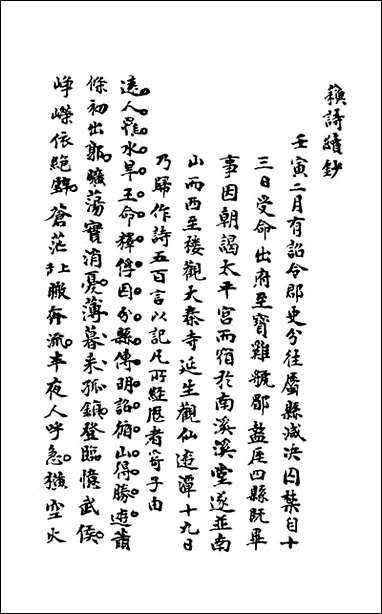 蘇詩續鈔
壬寅二月有詔令郡吏分往屬縣減決囚禁自十
三日受命出府至寶雞虢郿盩厔四縣既畢
事因朝謁太平宮而宿於南溪溪堂遂並南
山而西至樓觀大秦寺延生觀仙遊潭十九日
乃歸作詩五百言以記凡所經歷者寄子由
遠人罹水旱王命釋俘囚分縣傳明詔循山得勝遊蕭
條初出郭曠蕩實消憂薄暮來孤鎮登臨憶武侯
崢嶸依絕壁蒼茫上瞰奔流半夜人呼急橫空火